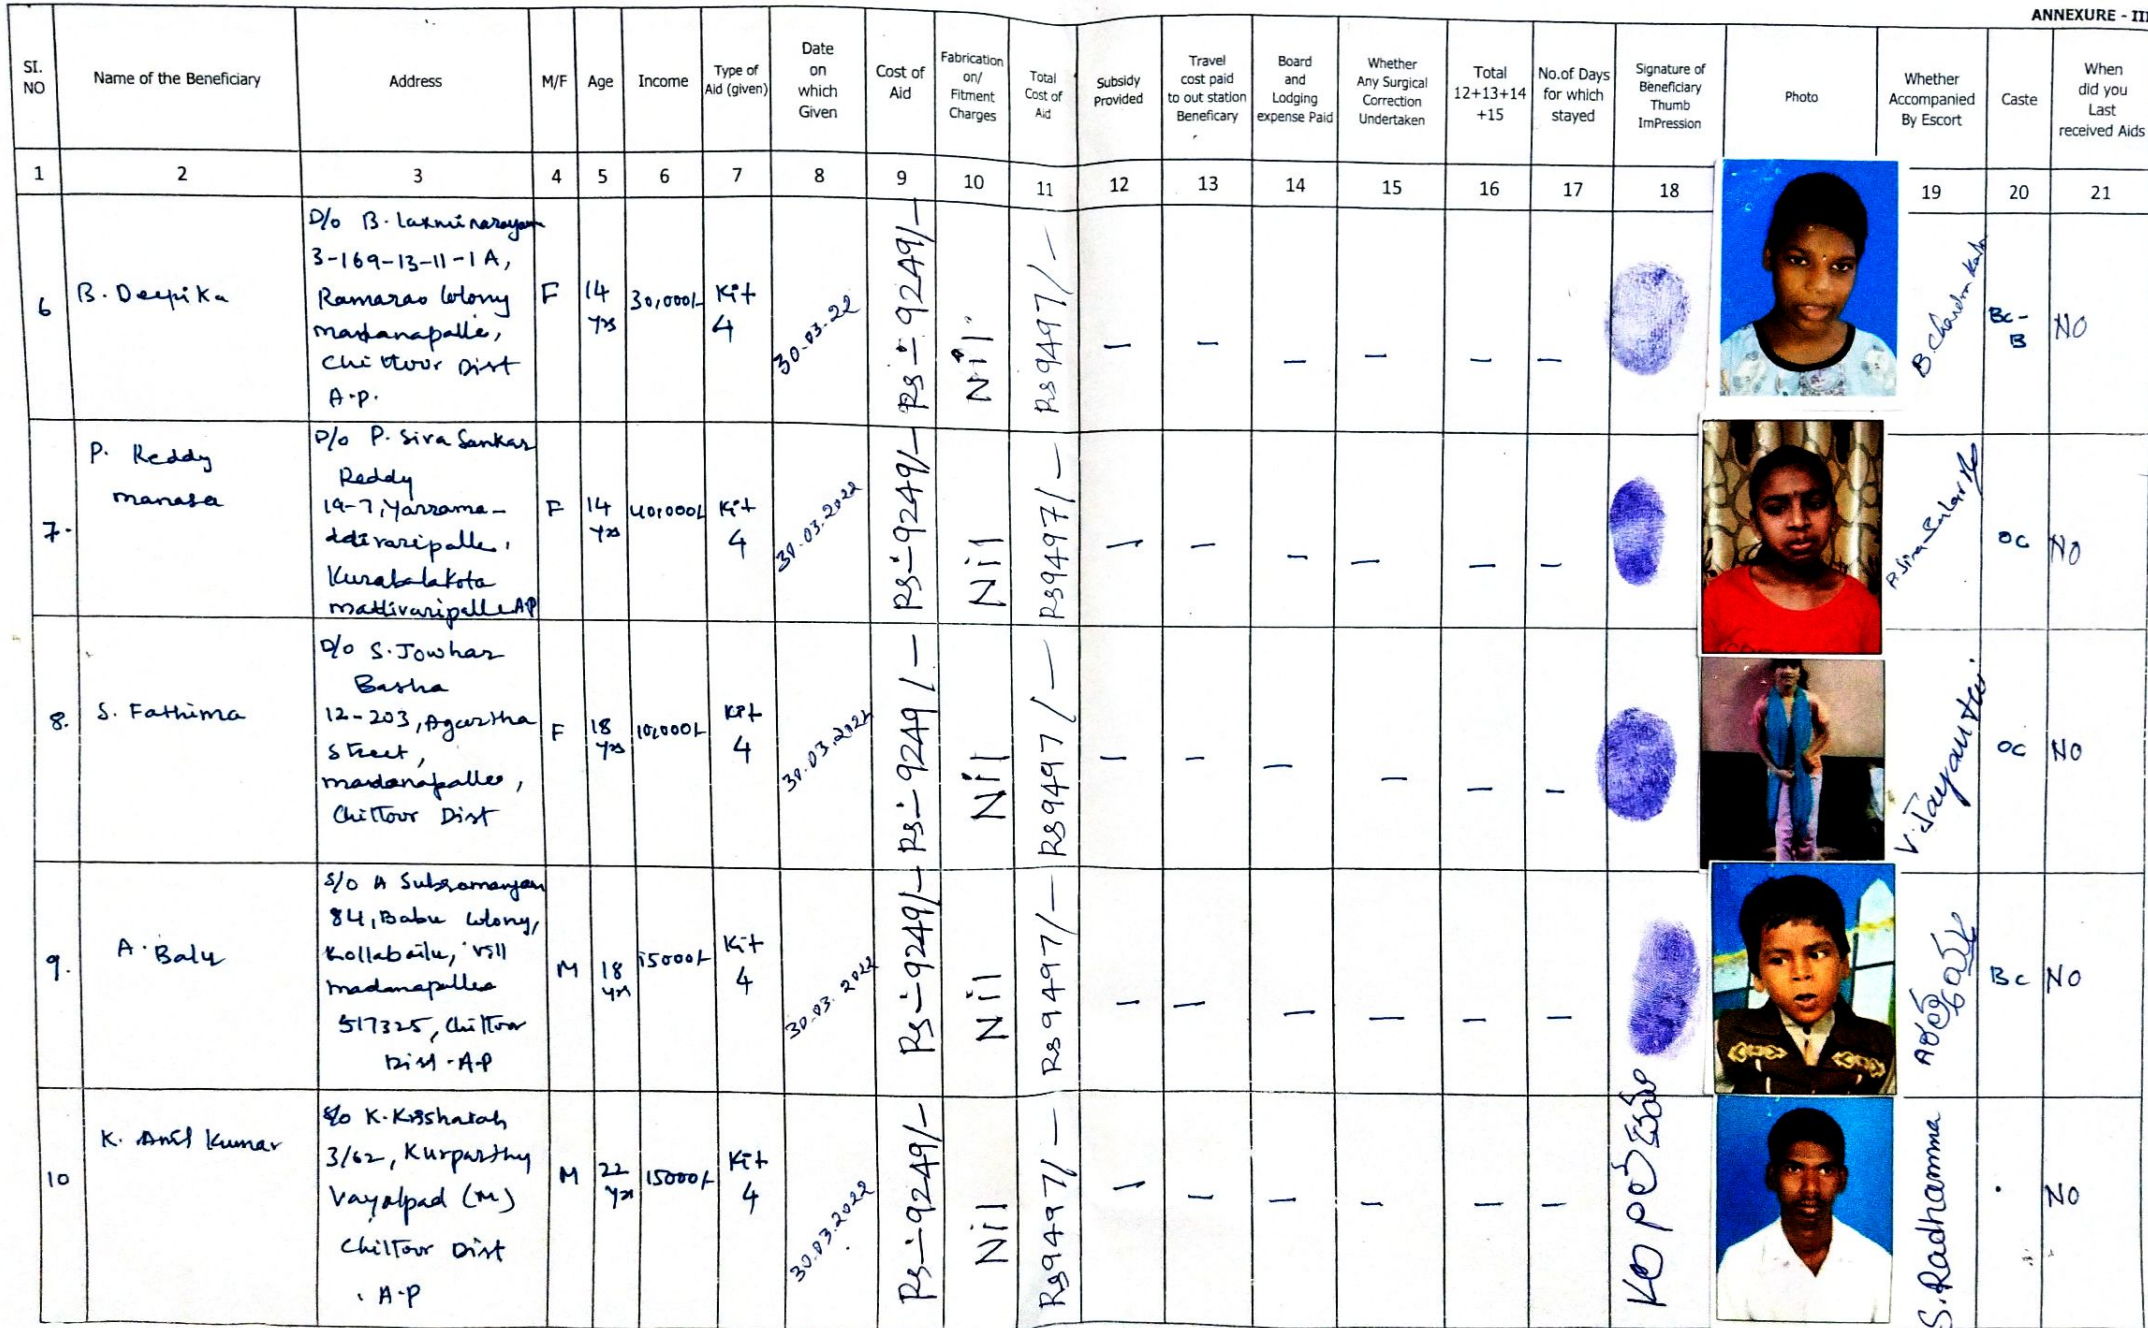 ANNEXURE - III
SI. NO
Name of the Beneficiary
Address
M/F
Age
Income
Type of Aid (given)
Date on which Given
Cost of Aid
Fabrication on/ Fitment Charges
Total Cost of Aid
Subsidy Provided
Travel cost paid to out station Beneficary
Board and Lodging expense Paid
Whether Any Surgical Correction Undertaken
Total 12+13+14 +15
No.of Days for which stayed
Signature of Beneficiary Thumb ImPression
Photo
Whether Accompanied By Escort
Caste
When did you Last received Aids
1 2 3 4 5 6 7 8 9 10 11 12 13 14 15 16 17 18 19 20 21
6
B. Deepika
D/o B. Laxminarayan
3-169-13-11-1A,
Ramarao Colony
madanapalle,
Chittoor Dist
A.P.
F
14 yrs
30,000/-
Kit 4
30.03.22
Rs:-9249/-
Nil
Rs9497/-
— — — — — —
B. Chandra Kala
BC-B
NO
7.
P. Reddy
manasa
D/o P. Siva Sankar
Reddy
19-7, Yarrama-
ddivaripalle,
Kurabalakota
mattivaripalle AP
F
14 yrs
40,000/-
Kit 4
30.03.2022
Rs:-9249/-
Nil
Rs9497/-
— — — — — —
OC
NO
8.
S. Fathima
D/o S. Jowhar
Basha
12-203, Agastha
Street,
madanapalle,
Chittoor Dist
F
18 yrs
10,000/-
Kit 4
30.03.2022
Rs:-9249/-
Nil
Rs9497/-
— — — — — —
V. Jayanthi
OC
NO
9.
A. Balu
S/o A Subramanyam
84, Babu Colony,
Kollabailu, vill
madanapalle
517325, Chittoor
Dist - A.P
M
18 yrs
15000/-
Kit 4
30.03.2022
Rs:-9249/-
Nil
Rs9497/-
— — — — — —
BC
NO
10
K. Anil Kumar
S/o K.
3/62, Kurparthy
Vayalpad (M)
Chittoor Dist
A-P
M
22 yrs
15000/-
Kit 4
30.03.2022
Rs:-9249/-
Nil
Rs9497/-
— — — — — —
S. Radhamma
NO